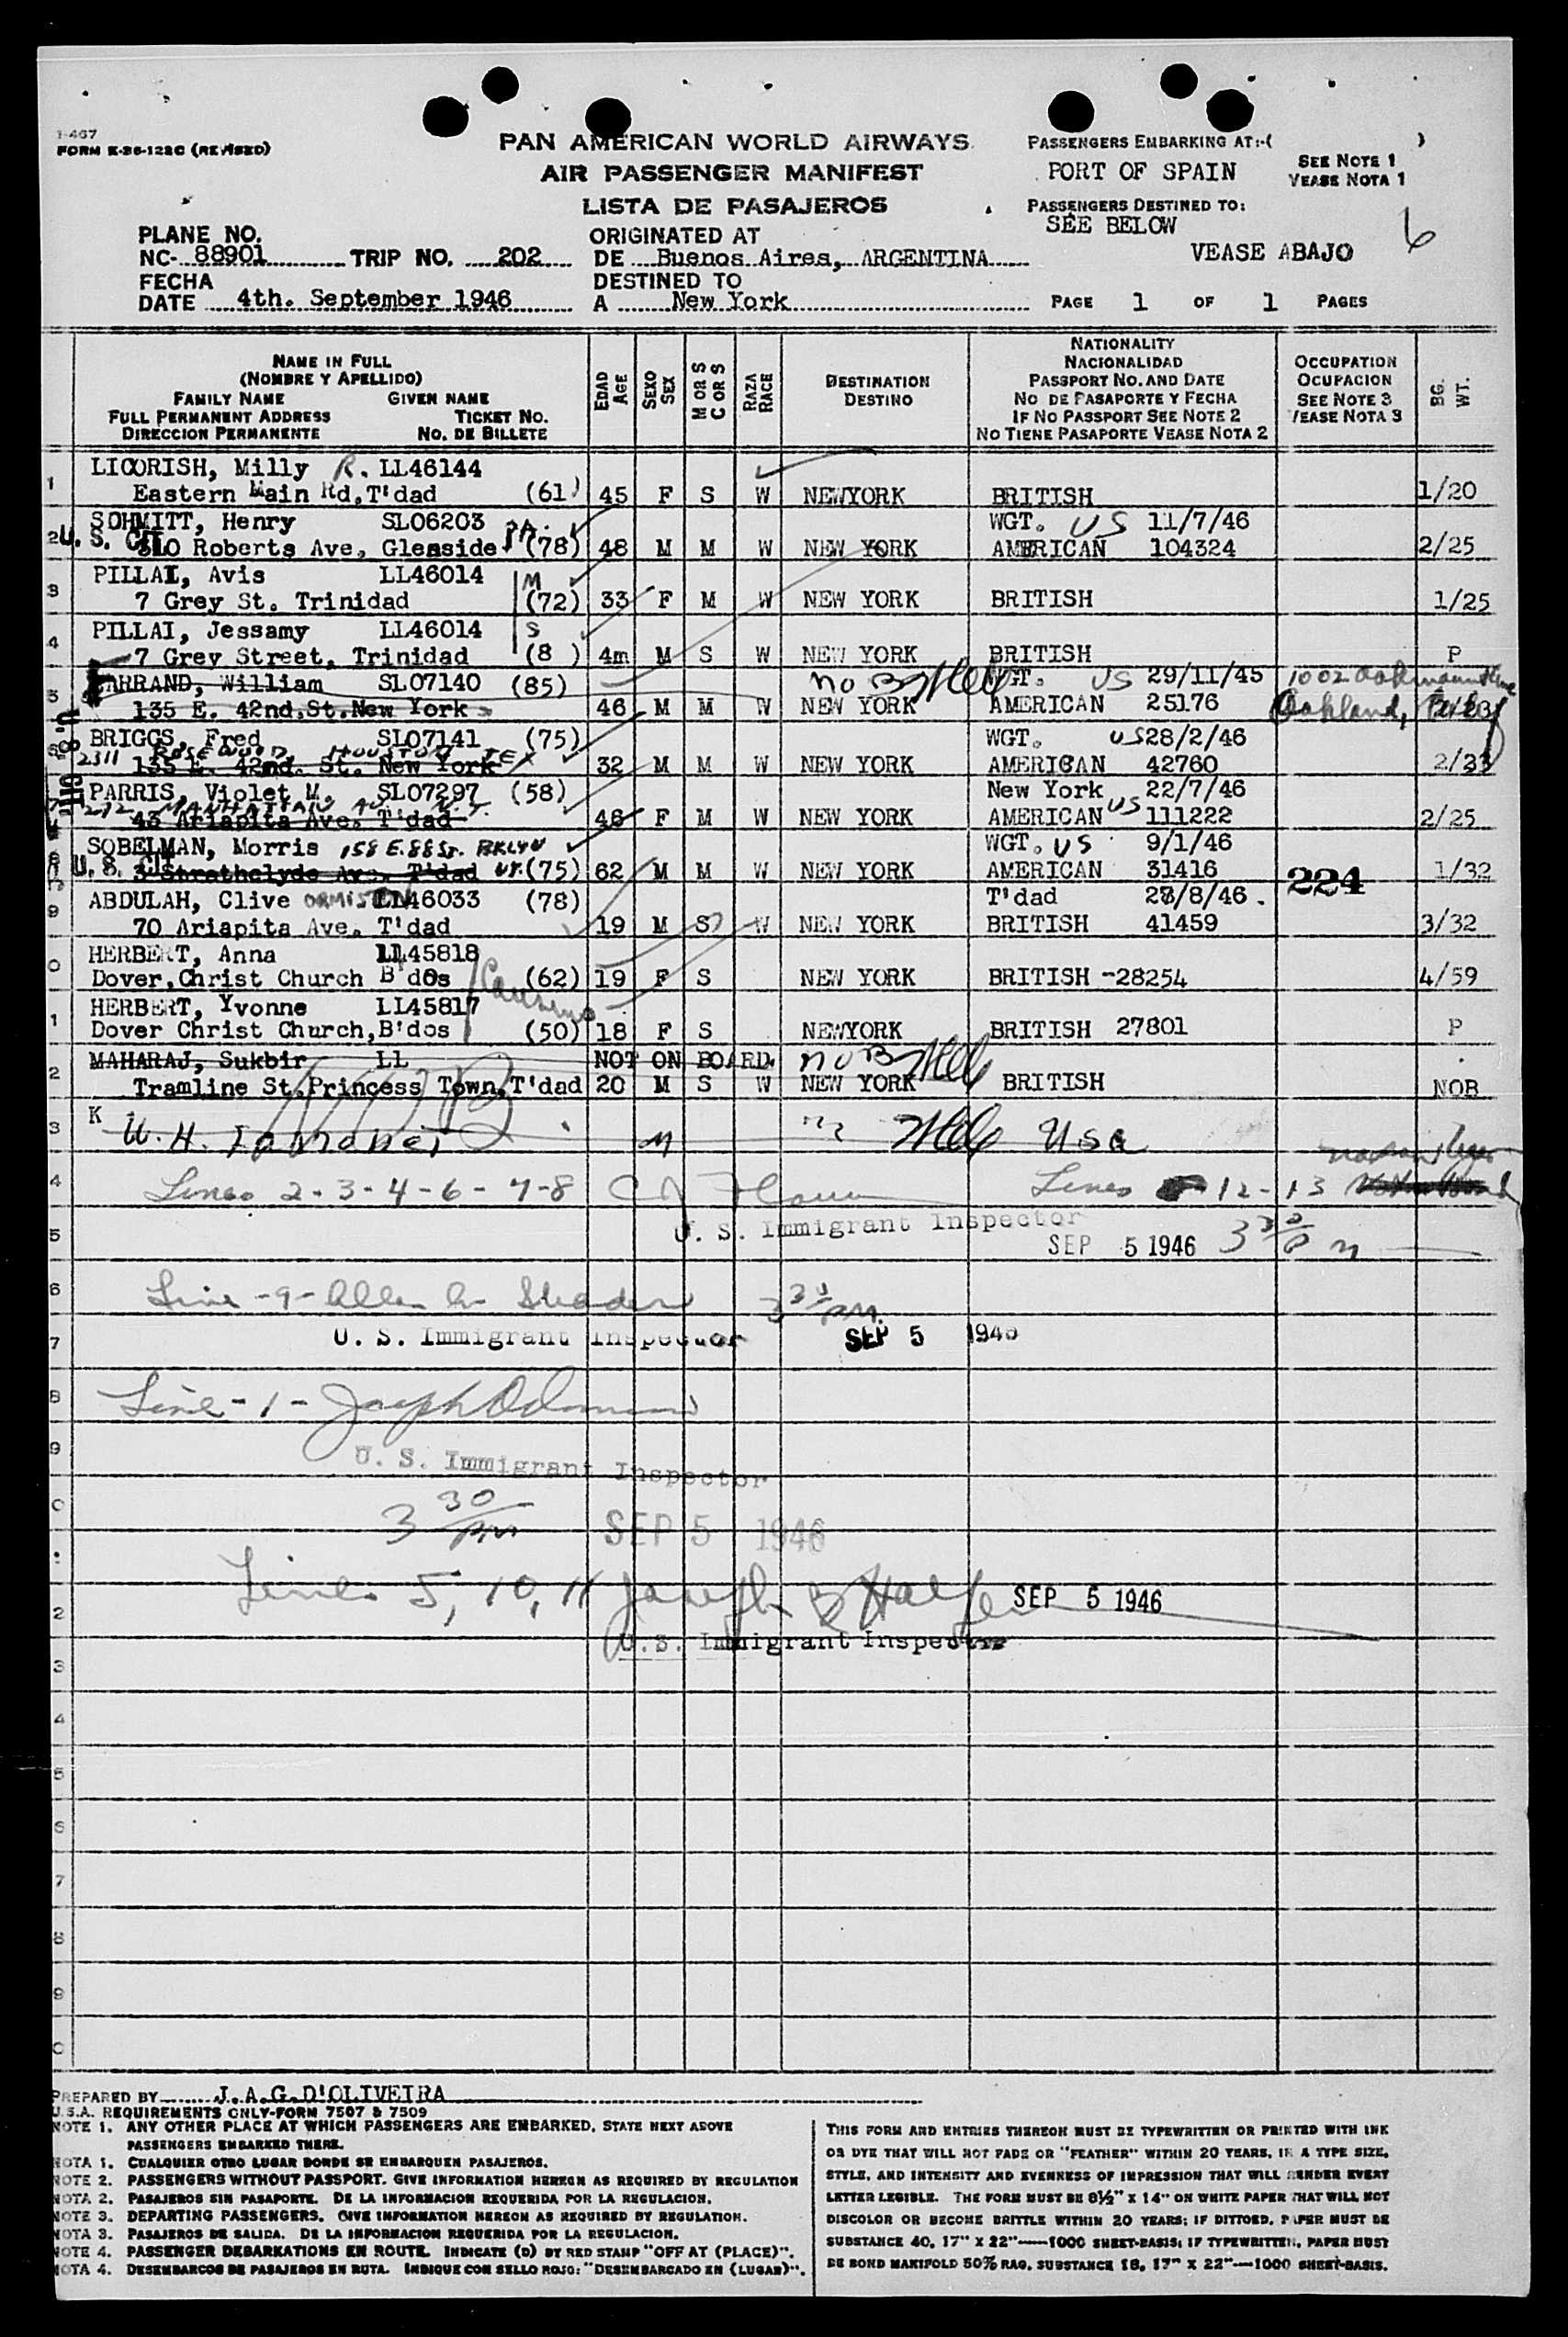 I-467
FORM K-26-122C (REVISED)
PAN AMERICAN WORLD AIRWAYS
AIR PASSENGER MANIFEST
LISTA DE PASAJEROS
PASSENGERS EMBARKING AT:-( )
PORT OF SPAIN
SEE NOTE 1
VEASE NOTA 1
PASSENGERS DESTINED TO:
SEE BELOW
VEASE ABAJO
6
PLANE NO.
NC- 88901 TRIP NO. 202
FECHA
DATE 4th. September 1946
ORIGINATED AT
DE Buenos Aires, ARGENTINA
DESTINED TO
A New York
PAGE 1 OF 1 PAGES
NAME IN FULL
(NOMBRE Y APELLIDO)
FAMILY NAME GIVEN NAME
FULL PERMANENT ADDRESS TICKET NO.
DIRECCION PERMANENTE NO. DE BILLETE
EDAD AGE
SEXO SEX
M OR S C OR S
RAZA RACE
DESTINATION
DESTINO
NATIONALITY
NACIONALIDAD
PASSPORT NO. AND DATE
NO DE PASAPORTE Y FECHA
IF NO PASSPORT SEE NOTE 2
NO TIENE PASAPORTE VEASE NOTA 2
OCCUPATION
OCUPACION
SEE NOTE 3
VEASE NOTA 3
BG. WT.
1 LICORISH, Milly R. LL46144
Eastern Main Rd,T'dad (61) 45 F S W NEWYORK BRITISH 1/20
2 SCHMITT, Henry SL06203 PA. WGT. US 11/7/46
U. S. CIT 310 Roberts Ave, Glenside (78) 48 M M W NEW YORK AMERICAN 104324 2/25
3 PILLAI, Avis LL46014 M
7 Grey St. Trinidad (72) 33 F M W NEW YORK BRITISH 1/25
4 PILLAI, Jessamy LL46014 S
7 Grey Street, Trinidad (8 ) 4m M S W NEW YORK BRITISH P
5 FARRAND, William SL07140 (85) no B WGT. US 29/11/45 1002
135 E. 42nd.St.New York 46 M M W NEW YORK AMERICAN 25176 Oakland,
6 BRIGGS, Fred SL07141 (75) WGT. US 28/2/46
2311 ROSEWOOD HOUSTON TEX
135 E. 42nd. St. New York 32 M M W NEW YORK AMERICAN 42760 2/33
7 PARRIS, Violet M. SL07297 (58) New York 22/7/46
272 MANHATTAN AV N.Y.
43 Ariapita Ave. T'dad 46 F M W NEW YORK AMERICAN US 111222 2/25
8 SOBELMAN, Morris 158 E.88 St. BKLYN WGT. US 9/1/46
U. S. CIT 3 Strathclyde Ave. T'dad NY. (75) 62 M M W NEW YORK AMERICAN 31416 224 1/32
9 ABDULAH, Clive ORMISTON LL46033 (78) T'dad 28/8/46.
70 Ariapita Ave. T'dad 19 M S W NEW YORK BRITISH 41459 3/32
0 HERBERT, Anna LL45818
Dover,Christ Church B'dos (62) 19 F S NEW YORK BRITISH -28254 4/59
1 HERBERT, Yvonne LL45817
Dover Christ Church,B'dos (50) 18 F S NEWYORK BRITISH 27801 P
2 MAHARAJ, Sukbir LL NOT ON BOARD. no B
Tramline St.Princess Town,T'dad 20 M S W NEW YORK BRITISH NOB
3 K W. H. M USA
4 Lines 2-3-4-6-7-8 Lines 12-13
5 U. S. Immigrant Inspector SEP 5 1946 3 30 P m
6 Line -9- 3 30 PM.
7 U. S. Immigrant Inspector SEP 5 1946
8 Line -1- Joseph
9 U. S. Immigrant Inspector
0 3 30 PM SEP 5 1946
2 Lines 5, 10, 11 Joseph SEP 5 1946
U.S. Immigrant Inspector
3
4
5
6
7
8
9
0
PREPARED BY J.A.G.D'OLIVEIRA
U.S.A. REQUIREMENTS ONLY-FORM 7507 & 7509
NOTE 1. ANY OTHER PLACE AT WHICH PASSENGERS ARE EMBARKED, STATE NEXT ABOVE
PASSENGERS EMBARKED THERE.
NOTA 1. CUALQUIER OTRO LUGAR DONDE SE EMBARQUEN PASAJEROS.
NOTE 2. PASSENGERS WITHOUT PASSPORT. GIVE INFORMATION HEREON AS REQUIRED BY REGULATION
NOTA 2. PASAJEROS SIN PASAPORTE. DE LA INFORMACION REQUERIDA POR LA REGULACION.
NOTE 3. DEPARTING PASSENGERS. GIVE INFORMATION HEREON AS REQUIRED BY REGULATION.
NOTA 3. PASAJEROS DE SALIDA. DE LA INFORMACION REQUERIDA POR LA REGULACION.
NOTE 4. PASSENGER DEBARKATIONS EN ROUTE. INDICATE (D) BY RED STAMP "OFF AT (PLACE)".
NOTA 4. DESEMBARCOS DE PASAJEROS EN RUTA. INDIQUE CON SELLO ROJO: "DESEMBARCADO EN (LUGAR)".
THIS FORM AND ENTRIES THEREON MUST BE TYPEWRITTEN OR PRINTED WITH INK
OR DYE THAT WILL NOT FADE OR "FEATHER" WITHIN 20 YEARS, IN A TYPE SIZE,
STYLE, AND INTENSITY AND EVENNESS OF IMPRESSION THAT WILL RENDER EVERY
LETTER LEGIBLE. THE FORM MUST BE 8½" X 14" ON WHITE PAPER THAT WILL NOT
DISCOLOR OR BECOME BRITTLE WITHIN 20 YEARS; IF DITTOED, PAPER MUST BE
SUBSTANCE 40, 17" X 22"—1000 SHEET-BASIS; IF TYPEWRITTEN, PAPER MUST
BE BOND MANIFOLD 50% RAG, SUBSTANCE 16, 17" X 22"—1000 SHEET-BASIS.